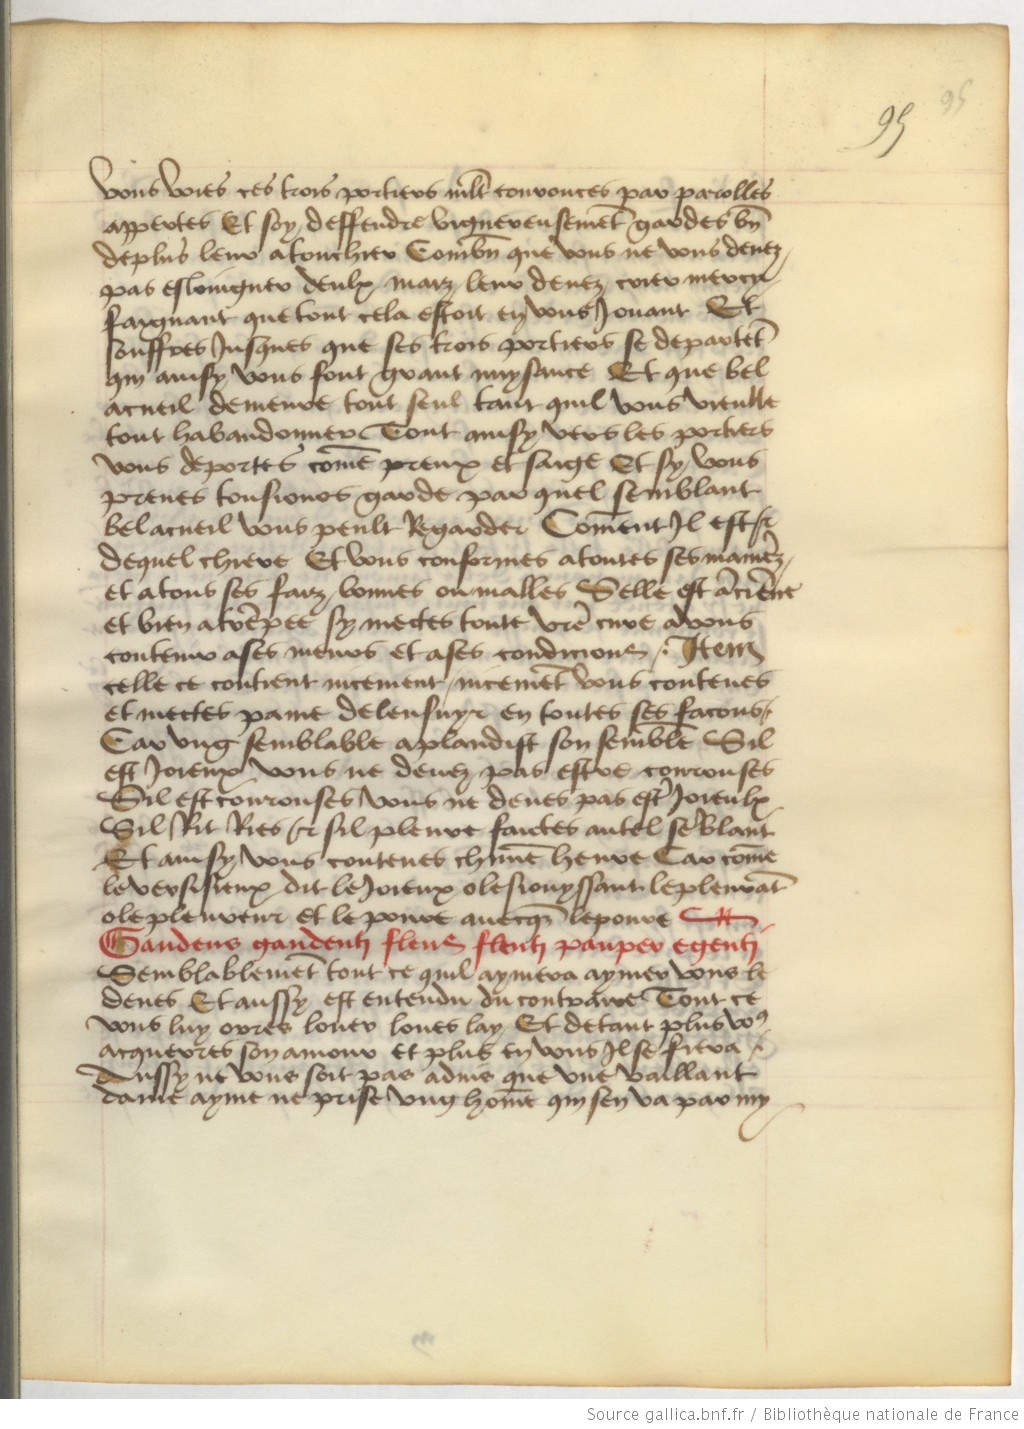 95 95
vous voies ces trois portiers mlt courouces par parolles
appertes Et soy deffendre viguereusemēt gardes bn̄
deplus leur atouchier Combn̄ que vous ne vous deuez
pas esloingner deulx maiz leur deuez crier mercy
faignant que tout cela estoit en vous Jouant Et
souffres Jusques que ses trois portiers se departēt
qui ainsy vous font grant nuysance Et que bel
acueil demeure tout seul tant quil vous vieulle
tout habandonner Tout ainsy vers les portiers
vous deportes cōme preux et saige Et sy vous
prenes tousiours garde par quel semblant
bel acueil vous peult Regarder Coment Jl est
dequel chiere Et vous conformes a toutes ses manieres
et a tous ses faiz bonnes ou malles Selle est āciēne
et bien atrēpee sy mectes toute vrē cure a vous
contenir a ses meurs et a ses condicions Item
celle ce contient nicement nicemēt vous contenes
et mectes paine delensuyr en toutes ses facons
Car vng semblable aplaudist son semblē Sil
est Joieux vous ne deuez pas estre courouses
Sil est courouses vous ne deues pas estr̄ Joieulx
Sil Rit Ries et sil pleure faictes autel sēblant
Et ainsy vous contenes chūne heure Car cōme
le versisieux dit le Joieux o lesiouyssant le plourāt
o le pleureur et le poure auecqz le poure
Gaudens gaudenti flens flenti pauper egenti
Semblablemēt tout ce quil aymera aymer vous le
deues Et aussy est entendu du contraire Tout ce
vous luy orres louer loues lay Et de tant plus vo9
acquerres son amour et plus en vous Jl se fiera
Aussy ne vous soit pas aduis que vne vaillant
dame ayme ne prise vng home qui sen va par my
Source gallica.bnf.fr / Bibliothèque nationale de France